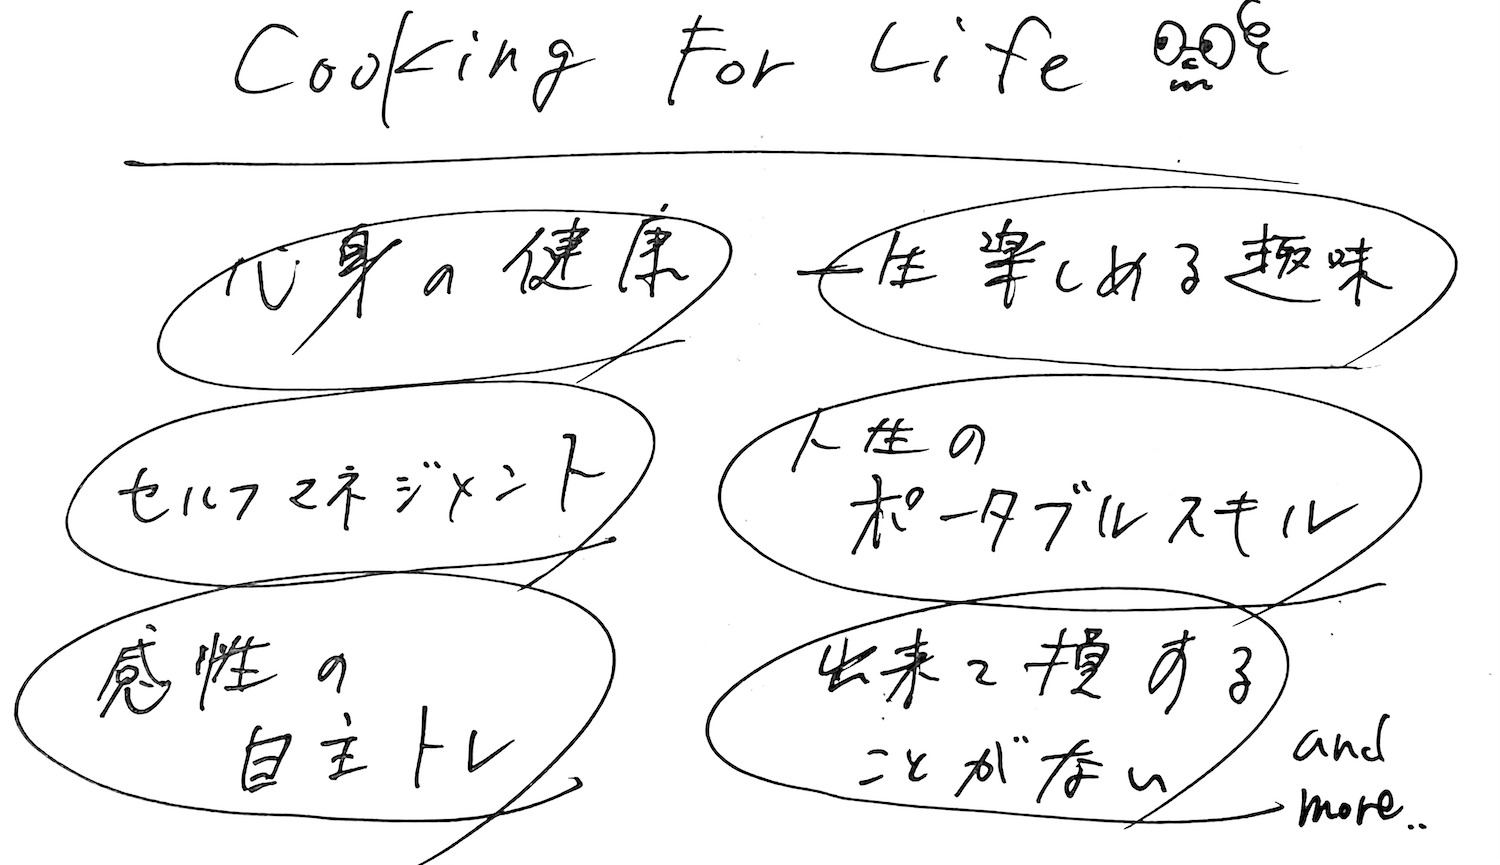 Cooking For Life
心身の健康
一生楽しめる趣味
セルフマネジメント
人生の
ポータブルスキル
感性の
自主トレ
出来て損する
ことがない
and
more..